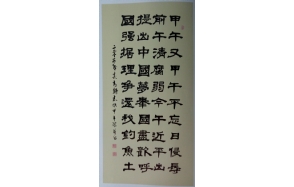 甲午又甲午不忘日侵辱
前午清腐弱今午近平出
提出中國夢舉國盡歡呼
國强據理爭還我釣魚土